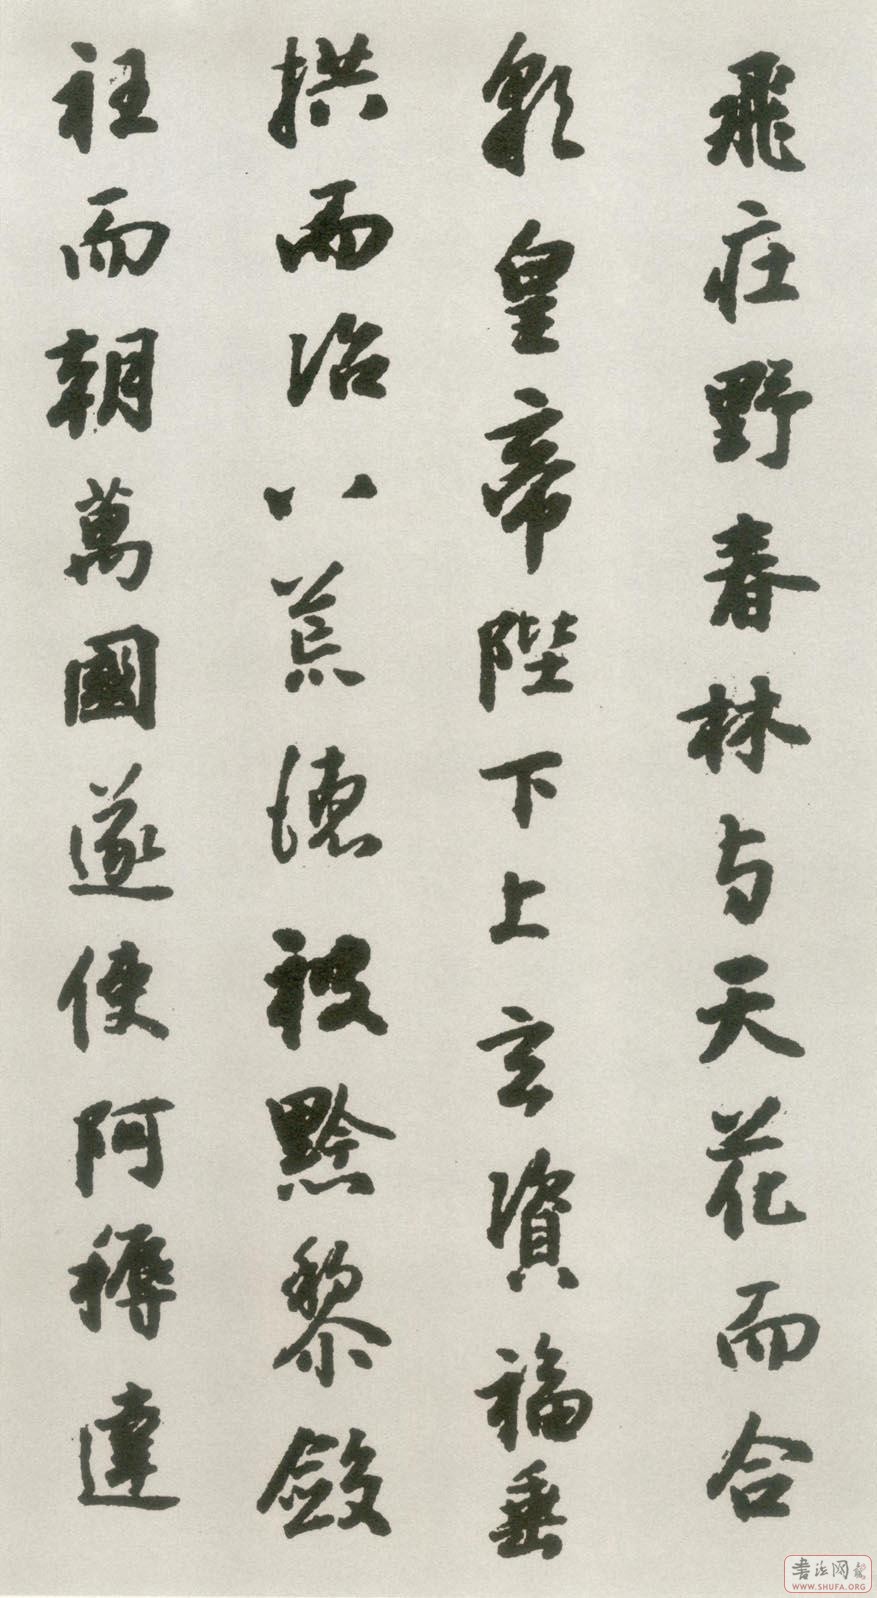 飛庄野春林与天花而合
彩皇帝陛下上玄資福垂
拱而治八荒德被黔黎斂
衽而朝萬國遂使阿耨達
書法网
WWW.SHUFA.ORG